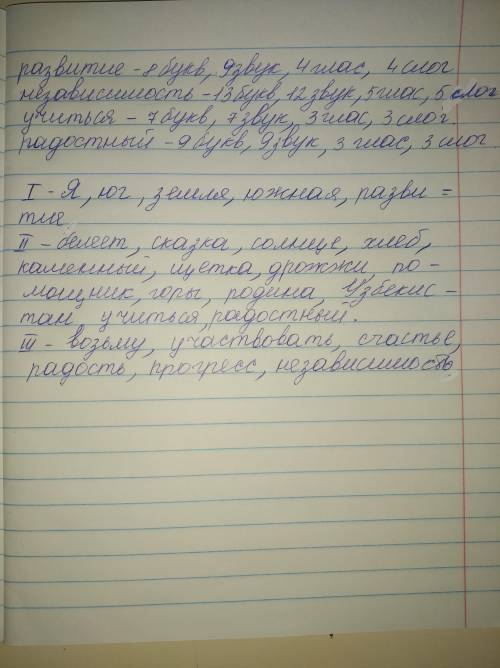 развитие - 8 букв, 9 звук, 4 глас, 4 слог
независимость - 13 букв, 12 звук, 5 глас, 5 слог
учиться - 7 букв, 7 звук, 3 глас, 3 слог.
радостный - 9 букв, 9 звук, 3 глас, 3 слог
I - Я, юг, земля, южная, разви =
тие
II - белеет, сказка, солнце, хлеб,
каменный, щетка, дрожжи, по-
мощник, горы, родина, Узбекис-
тан учиться, радостный.
III - возьму, участвовать, счастье,
радость, прогресс, независимость